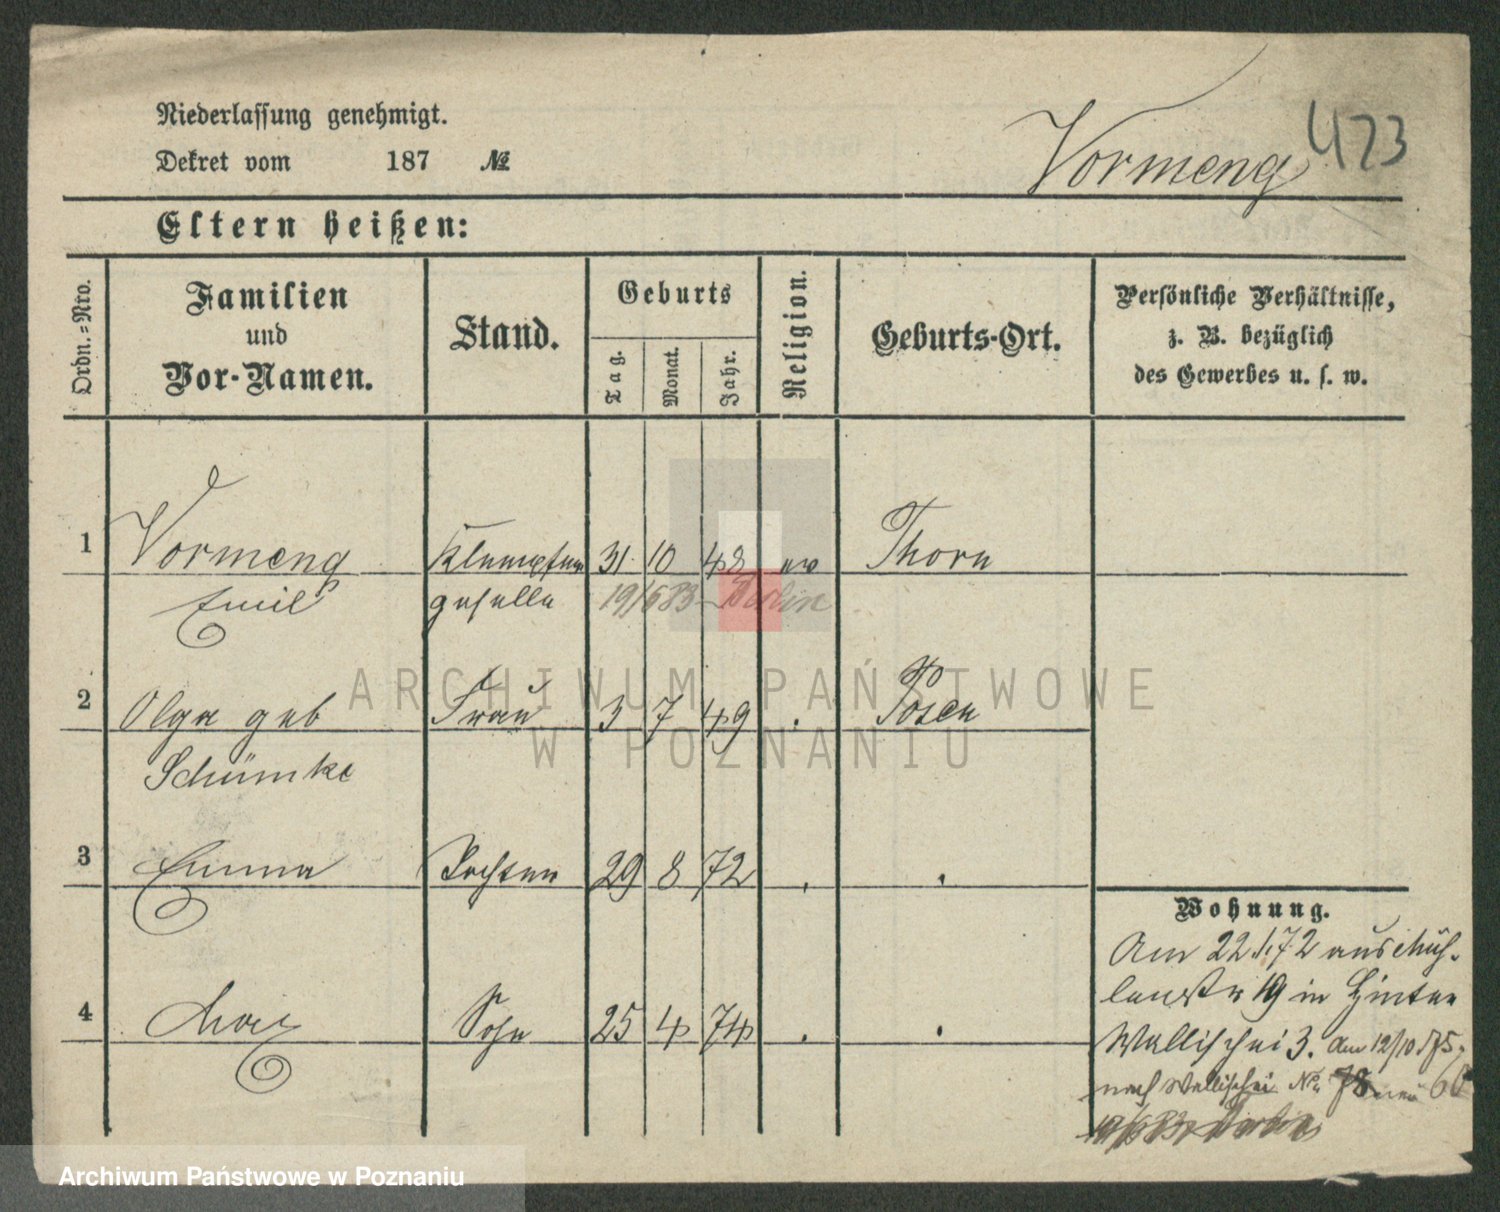 Niederlassung genehmigt.
Dekret vom 187 №
Vormeng 423
Eltern heißen:
Ordn.=Nro.
Familien
und
Vor-Namen.
Stand.
Geburts
Tag.
Monat.
Jahr.
Religion.
Geburts-Ort.
Persönliche Verhältnisse,
z. B. bezüglich
des Gewerbes u. s. w.
1 Vormeng Klempner 31. 10 48 ev Thorn
Emil geselle 19/6 83 Berlin
ARCHIWUM PAŃSTWOWE
W POZNANIU
2 Olga geb Frau 3 7 49 . Posen
Schümke
3 Emma Tochter 29 8 72 . .
4 Max Sohn 25 4 74 . .
Wohnung.
Am 22 72 aus Müh-
lenstr 19 in Hinter
Wallischei 3. Am 12/10 75
nach Wallischei No 78
19/6 83 Berlin
Archiwum Państwowe w Poznaniu